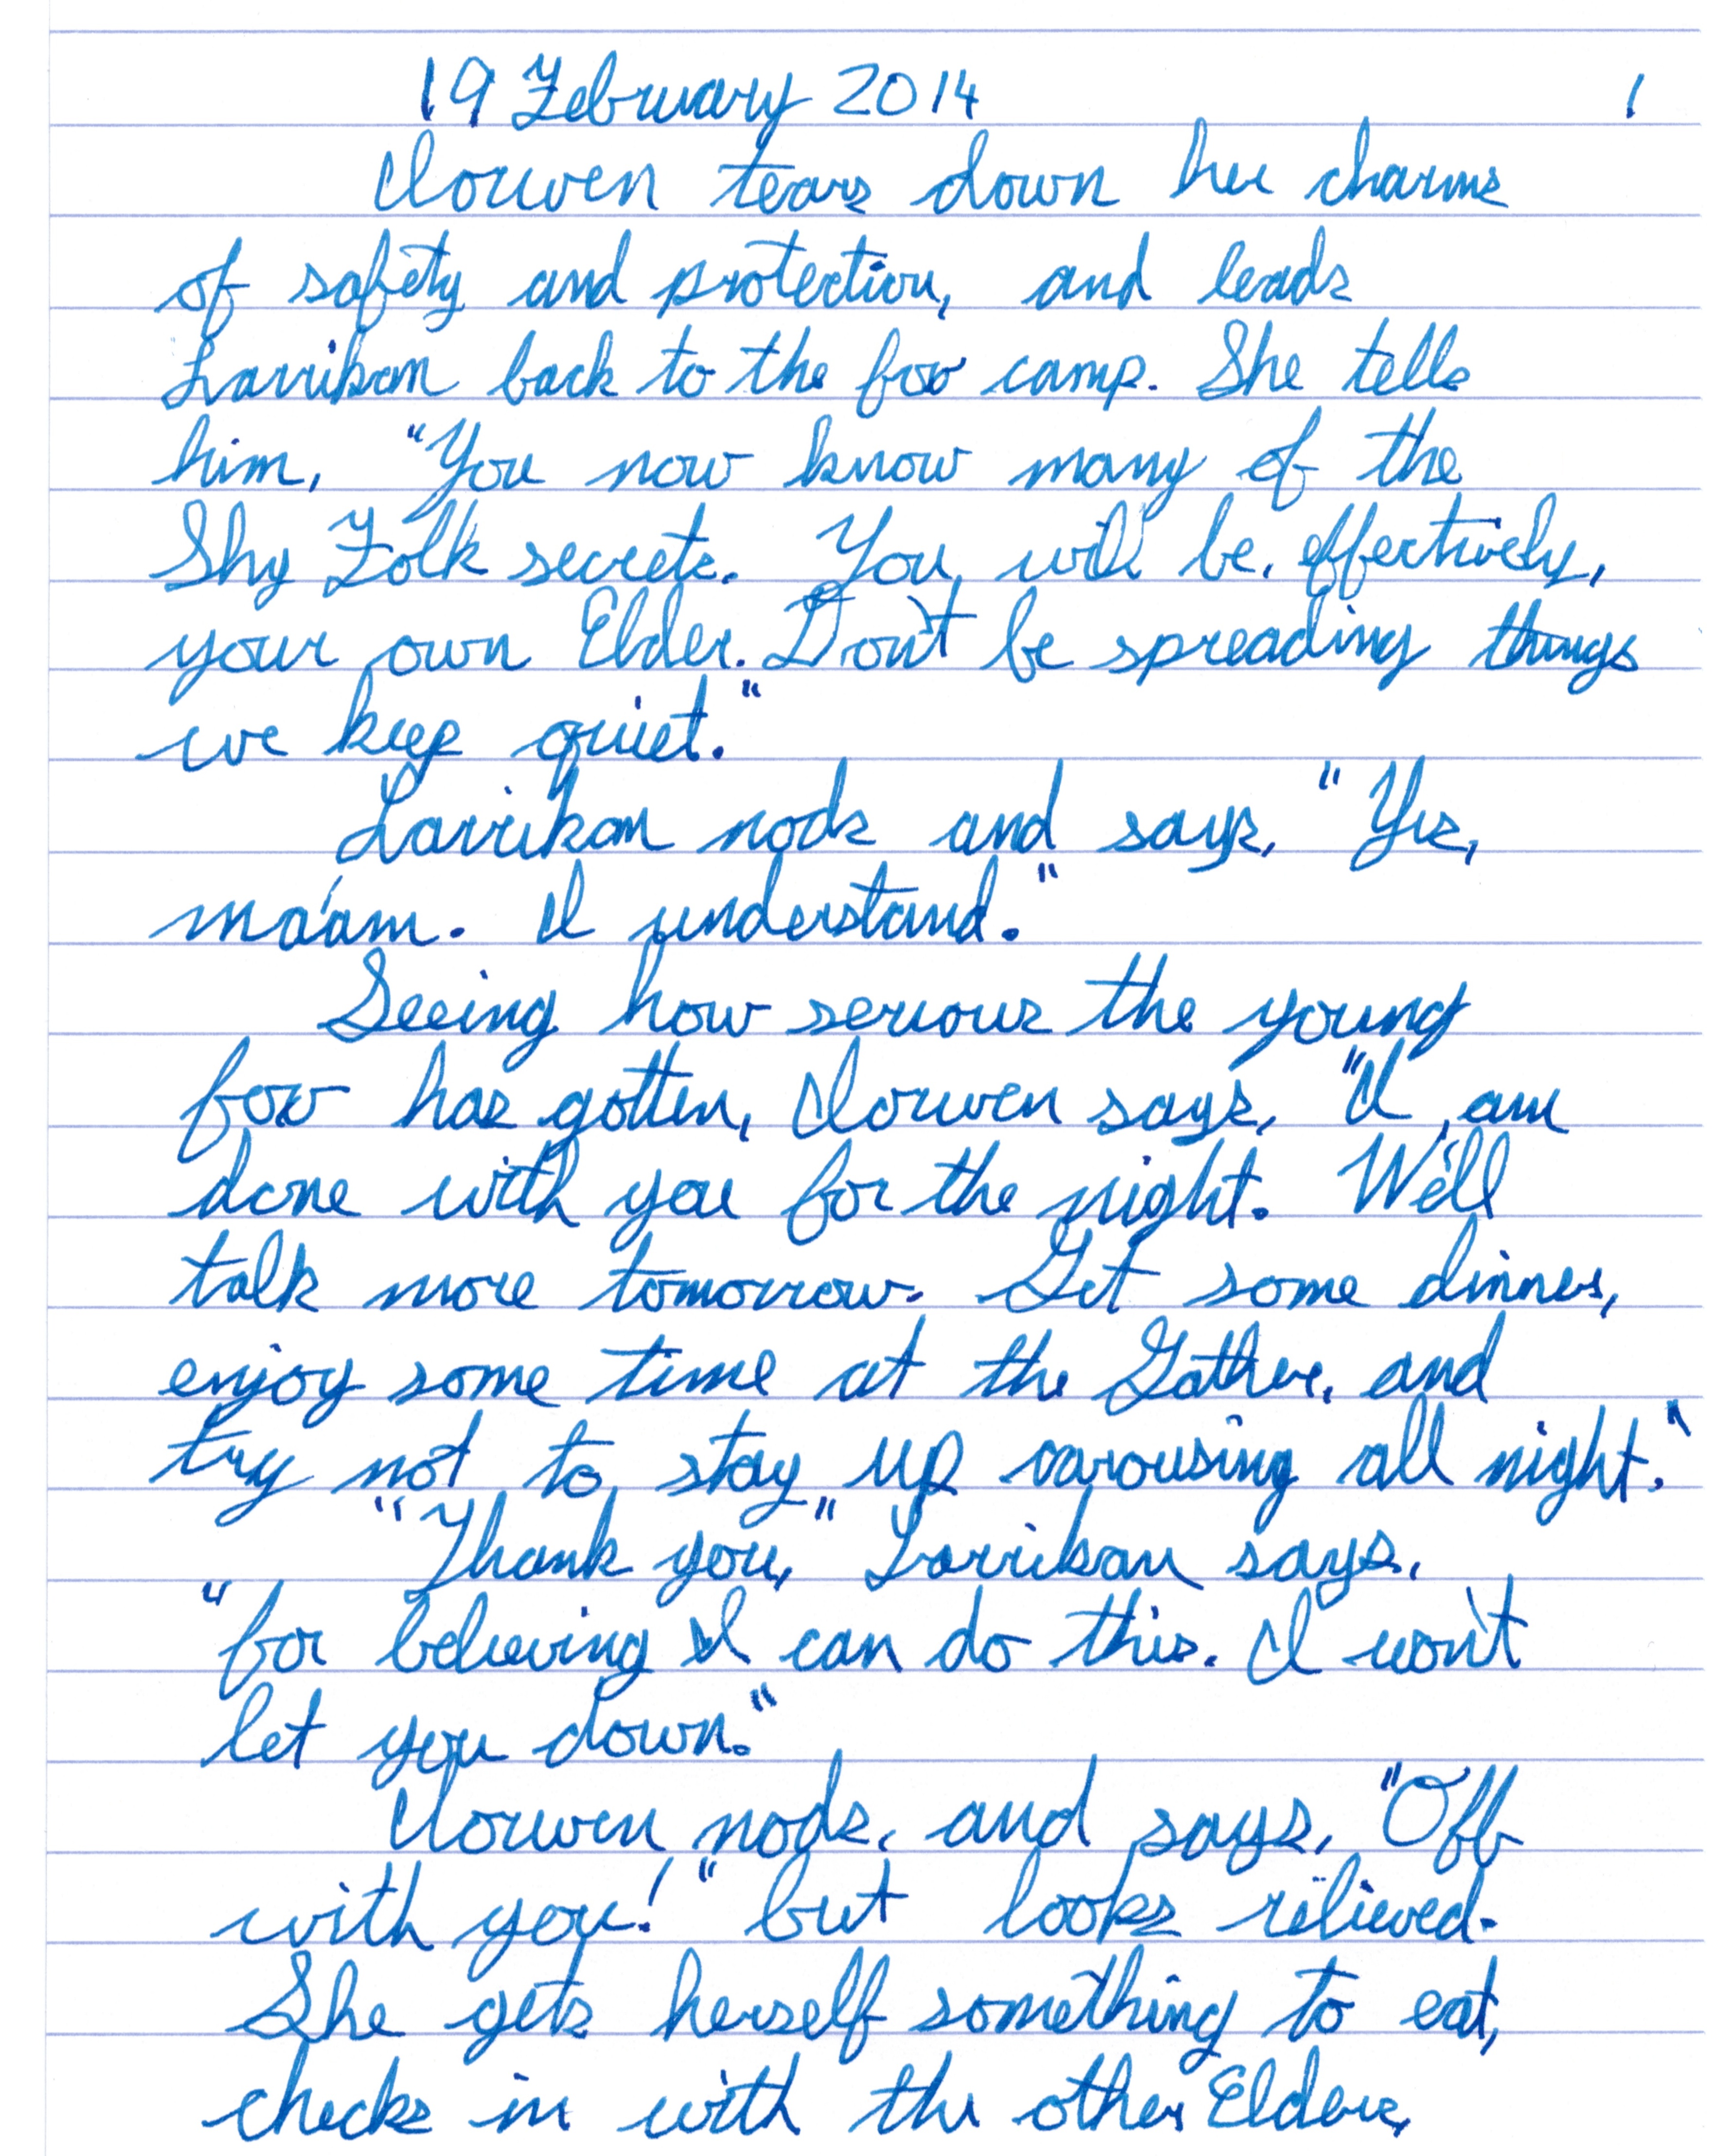 19 February 2014 1
Iorwen tears down her charms
of safety and protection, and leads
Larrikan back to the foo camp. She tells
him, "You now know many of the
Shy Folk secrets. You will be, effectively,
your own Elder. Don't be spreading things
we keep quiet."
Larrikan nods and says, "Yes,
ma'am. I understand."
Seeing how serious the young
foo has gotten, Iorwen says, "I am
done with you for the night. We'll
talk more tomorrow. Get some dinner,
enjoy some time at the Gather, and
try not to stay up carousing all night."
"Thank you," Larrikan says,
"for believing I can do this. I won't
let you down."
Iorwen nods, and says, "Off
with you!" but looks relieved.
She gets herself something to eat,
checks in with the other Elders,